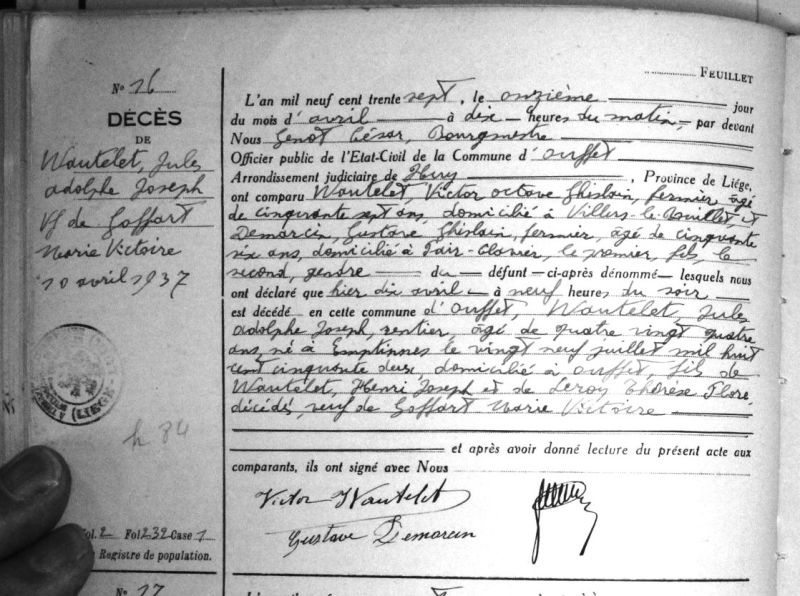 FEUILLET
N° 16
DÉCÈS
DE
Wautelet, Jules
Adolphe Joseph
Vf de Goffart
Marie Victoire
10 avril 1937
h 84
Vol. 2 Fol 232 Case 1
Registre de population.
L'an mil neuf cent trente sept, le onzième jour
du mois d'avril à dix heures du matin, par devant
Nous Genot César, Bourgmestre
Officier public de l'Etat-Civil de la Commune d'Ouffet
Arrondissement judiciaire de Huy, Province de Liége,
ont comparu Wautelet, Victor Octave Ghislain, fermier, âgé
de cinquante sept ans, domicilié à Villers-le-Bouillet, et
Demarcin, Gustave Ghislain, fermier, âgé de cinquante
six ans, domicilié à Tair-Clavier, le premier, fils, le
second, gendre du défunt ci-après dénommé lesquels nous
ont déclaré que hier dix avril à neuf heures du soir
est décédé en cette commune d'Ouffet, Wautelet, Jules
Adolphe Joseph, rentier, âgé de quatre vingt quatre
ans, né à Emptinnes le vingt neuf juillet mil huit
cent cinquante deux, domicilié à Ouffet, fils de
Wautelet, Henri Joseph et de Leroy Thérèse Flore,
décédés, veuf de Goffart Marie Victoire
et après avoir donné lecture du présent acte aux
comparants, ils ont signé avec Nous
Victor Wautelet
Gustave Demarcin
N° 17